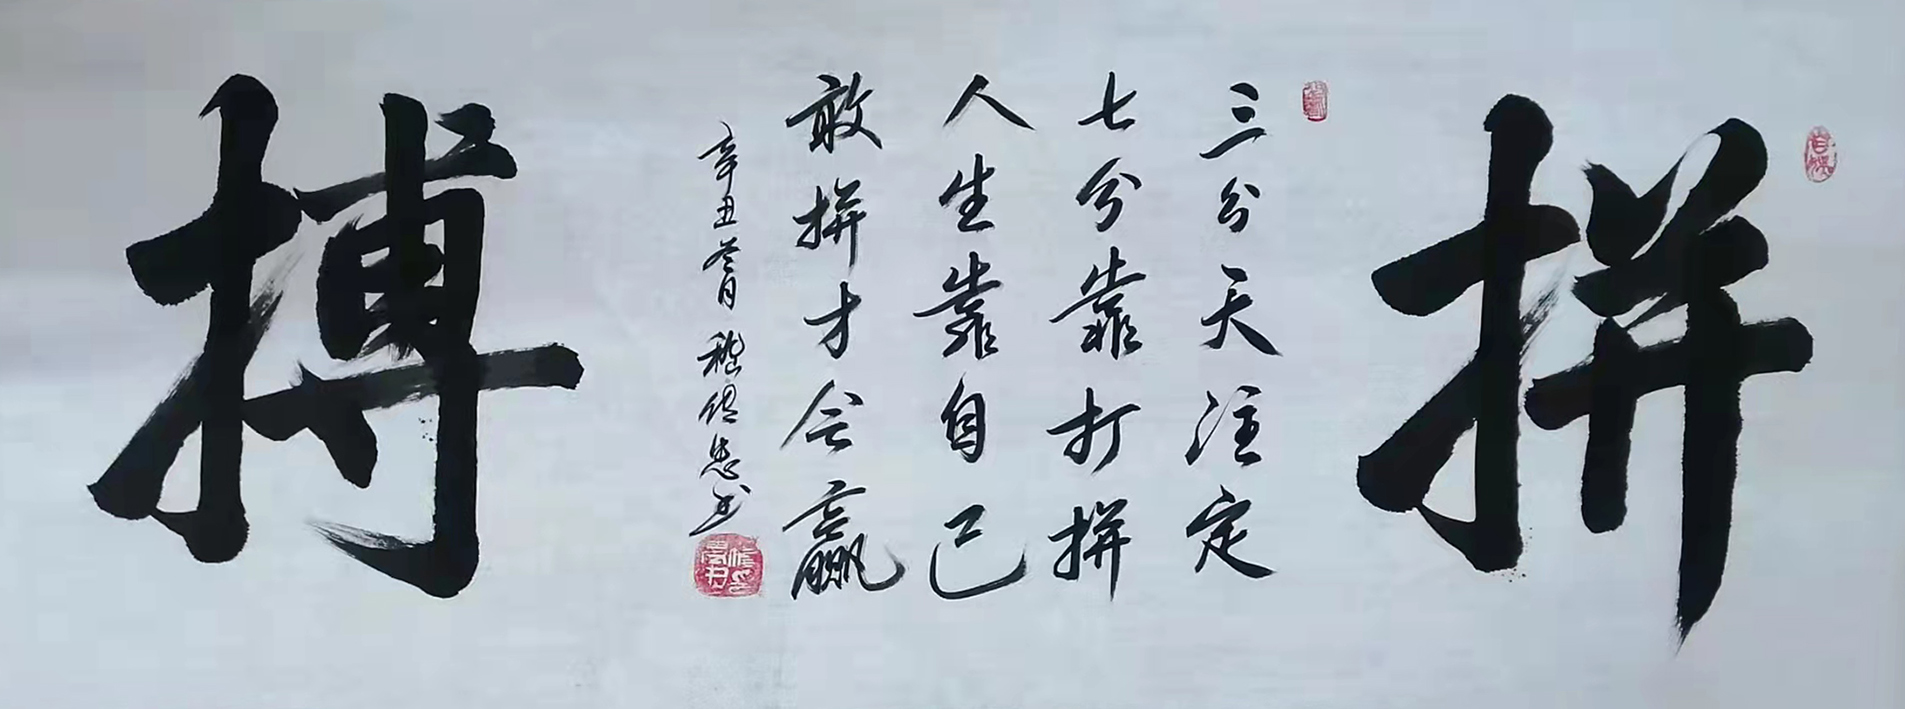 拼
三分天注定
七分靠打拼
人生靠自己
敢拼才会赢
辛丑年冬月 嵇传忠书
搏